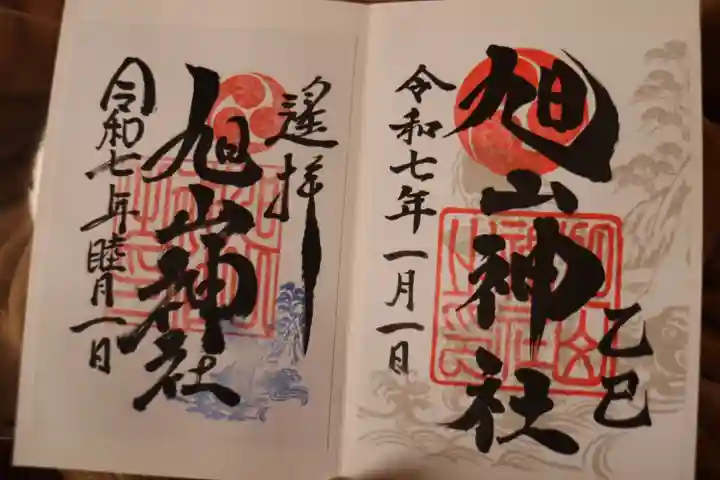 乙巳
旭山神社
令和七年一月一日
遥拝
旭山神社
令和七年睦月一日